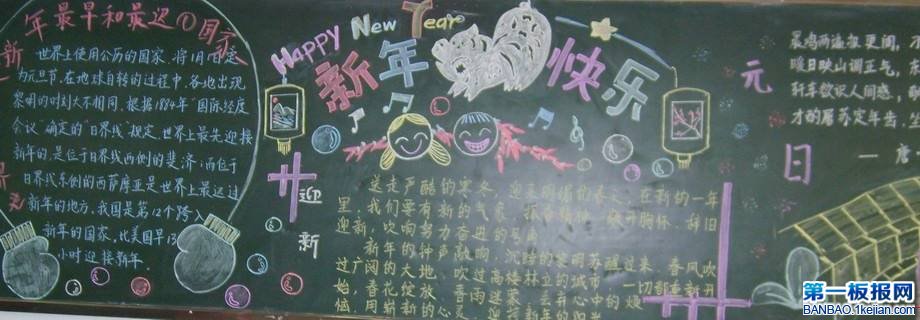 年最早和最迟的国
世界上使用公历的国家,将1月1日定
为元旦节.在地球自转的过程中,各地出现
黎明的时刻大不相同.根据1884年"国际经度
会议"确定的"日界线"规定,世界上最先迎接
新年的,是位于日界线西侧的斐济;而位于
日界线东侧的西萨摩亚是世界上最迟过
新年的地方,我国是第12个跨入
新年的国家,比美国早13
小时迎接新年
Happy New Year
新年快乐
迎新
元
日
送走严酷的寒冬,迎来明媚的春天,在新的一年
里,我们要有新的气象,振奋精神,敞开胸怀,辞旧
迎新,吹响努力奋进的号角
新年的钟声敲响,沉睡的黎明苏醒过来,春风吹
过广阔的大地,吹过高楼林立的城市,一切都重新开
始,香花绽放
晨鸡两遍报更阑
暖日映山调正气
轩车欲识人间感
才的屠苏定年齿
第一板报网
BANBAO.1kejian.com